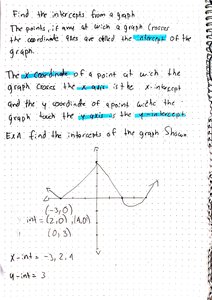 Find the intercepts from a graph
The points, if any at wich a graph crosses
the coordinate axes are called the intercepts of the
graph.
The x coordinate of a point at wich the
graph crosses the x axis is the x-intercept
and the y coordinate of a point wich the
graph touch the y axis is the y-intercept
ExA. find the intercepts of the graph Shown
(-3,0)
int = (2,0), (4,0)
(0,3)
x-int = -3, 2, 4
y-int = 3